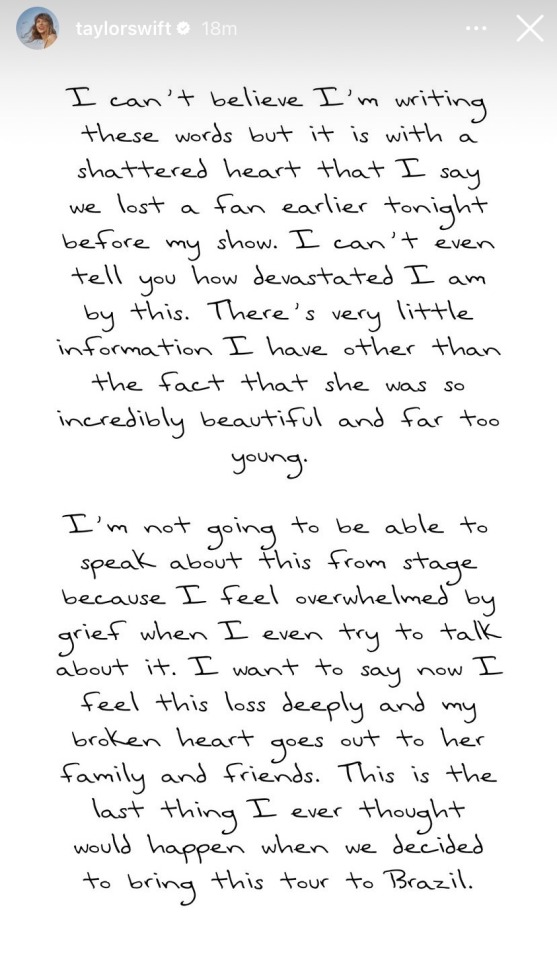 taylorswift 18m
I can't believe I'm writing
these words but it is with a
shattered heart that I say
we lost a fan earlier tonight
before my show. I can't even
tell you how devastated I am
by this. There's very little
information I have other than
the fact that she was so
incredibly beautiful and far too
young.
I'm not going to be able to
speak about this from stage
because I feel overwhelmed by
grief when I even try to talk
about it. I want to say now I
feel this loss deeply and my
broken heart goes out to her
family and friends. This is the
last thing I ever thought
would happen when we decided
to bring this tour to Brazil.